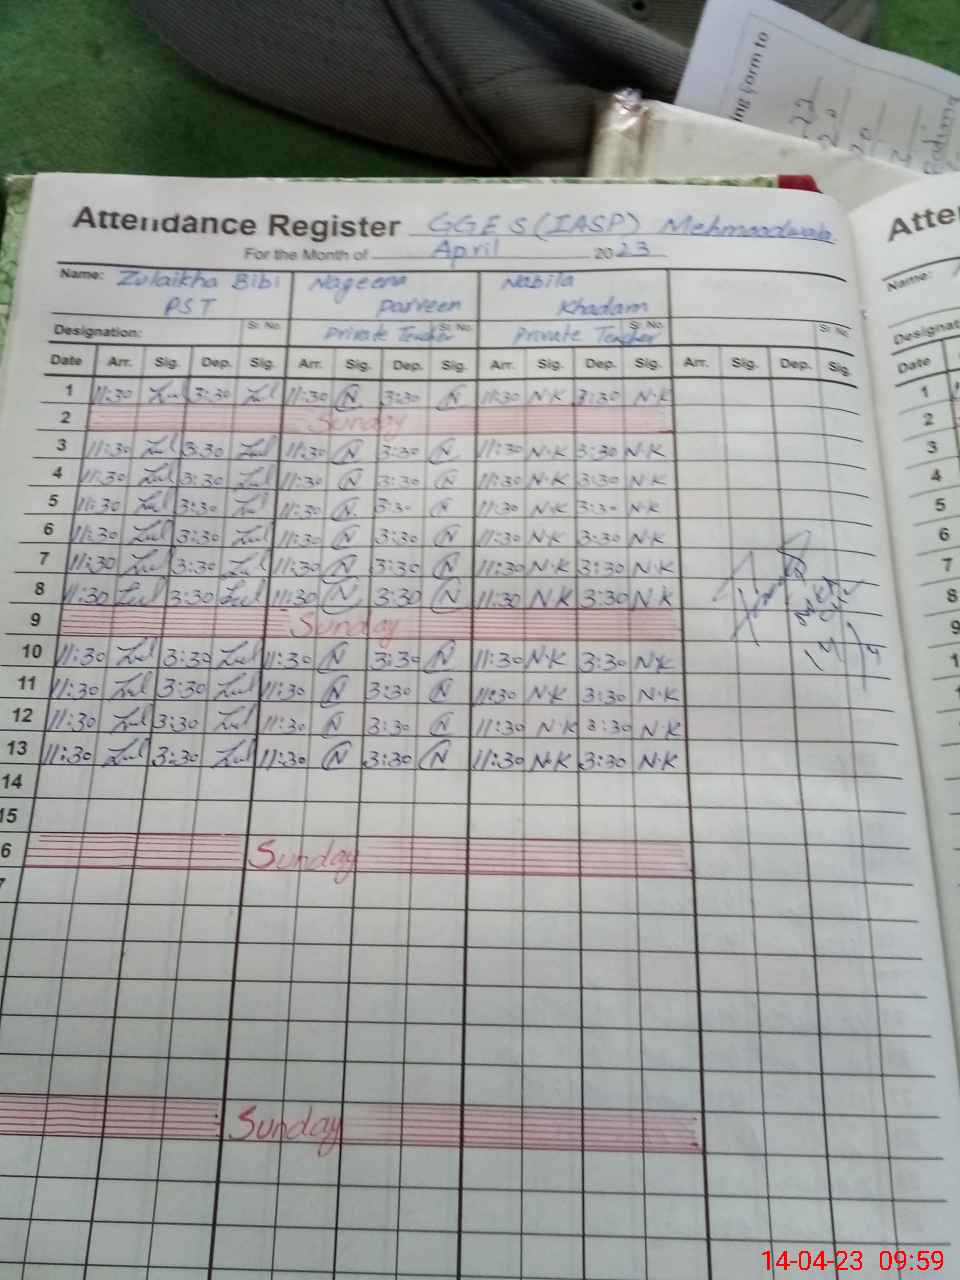 ing form to
Attendance Register GGES (IASP) Mehmoodwala
For the Month of April 2023
Name: Zulaikha Bibi Nageena Nabila
PST Parveen Khadam
Designation: Sr. No. Private Teacher Sr. No. Private Teacher Sr. No. Sr. No.
Date Arr. Sig. Dep. Sig. Arr. Sig. Dep. Sig. Arr. Sig. Dep. Sig. Arr. Sig. Dep. Sig.
1 11:30 Zul 3:30 Zul 11:30 N 3:30 N 11:30 N.K 3:30 N.K
2 Sunday
3 11:30 Zul 3:30 Zul 11:30 N 3:30 N 11:30 N.K 3:30 N.K
4 11:30 Zul 3:30 Zul 11:30 N 3:30 N 11:30 N.K 3:30 N.K
5 11:30 Zul 3:30 Zul 11:30 N 3:30 N 11:30 N.K 3:30 N.K
6 11:30 Zul 3:30 Zul 11:30 N 3:30 N 11:30 N.K 3:30 N.K
7 11:30 Zul 3:30 Zul 11:30 N 3:30 N 11:30 N.K 3:30 N.K
8 11:30 Zul 3:30 Zul 11:30 N 3:30 N 11:30 N.K 3:30 N.K
9 Sunday
10 11:30 Zul 3:30 Zul 11:30 N 3:30 N 11:30 N.K 3:30 N.K
11 11:30 Zul 3:30 Zul 11:30 N 3:30 N 11:30 N.K 3:30 N.K
12 11:30 Zul 3:30 Zul 11:30 N 3:30 N 11:30 N.K 3:30 N.K
13 11:30 Zul 3:30 Zul 11:30 N 3:30 N 11:30 N.K 3:30 N.K
14
15
6 Sunday
7
Sunday
Atte
Name:
Designat
Date
1
2
3
4
5
6
7
8
9
1
1
14-04-23 09:59